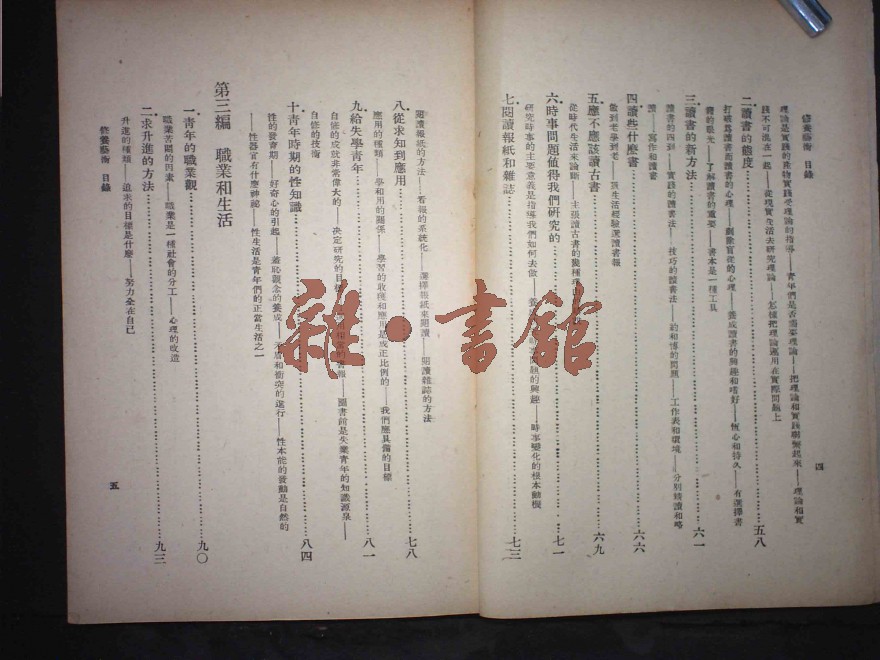 修養藝術　目錄
四
理論是實踐的產物實踐受理論的指導——青年們是否需要理論——把理論和實踐聯繫起來——理論和實
踐不可混在一起——從現實生活去研究理論——怎樣把理論運用在實際問題上
二讀書的態度…………五八
打破為讀書而讀書的心理——剷除盲從的心理——養成讀書的興趣和嗜好——恆心和持久——有選擇書
籍的眼光——了解讀書的重要——書本是一種工具
三讀書的新方法…………六一
讀書的四到——實踐的讀書法——技巧的讀書法——約和博的問題——工作表和環境——分別精讀和略
讀——寫作和讀書
四讀些什麼書…………六六
做到老學到老——從生活經驗選讀書報
五應不應該讀古書…………六九
從時代生活來論斷——主張讀古書的幾種理
六時事問題値得我們研究的…………七一
研究時事的主要意義是指導我們如何去做——養 問題的興趣——時事變化的根本動機
七閱讀報紙和雜誌…………七三
閱讀報紙的方法——看報的系統化——選擇報紙來閱讀——閱讀雜誌的方法
八從求知到應用…………七八
應用的種類——學和用的關係——學習的收穫和應用是成正比例的——我們應具備的目標
九給失學青年…………八一
自修的成就非常偉大的——決定研究的目標 書報——圖書館是失業青年的知識源泉——
自修的技術
十青年時期的性知識…………八四
性的發育期——好奇心的引起——羞恥觀念的養成——矛盾和衝突的進行——性本能的發動是自然的
——性器官有什麼神祕——性生活是青年們的正當生活之一
第三編　職業和生活
一青年的職業觀…………九〇
職業苦悶的因素——職業是一種社會的分工——心理的改造
二求升進的方法…………九三
升進的種類——追求的目標是什麼——努力全在自己
修養藝術　目錄
五
雜·書館